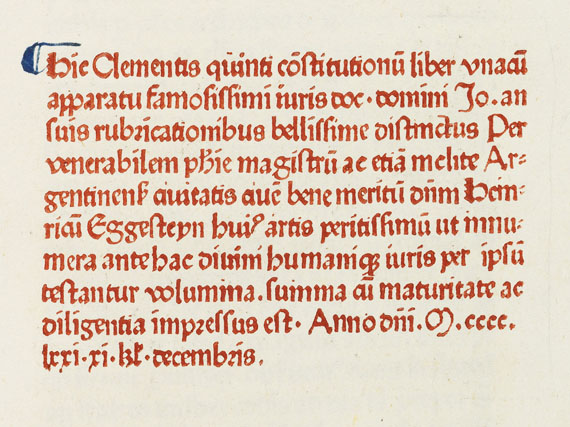 Hic Clementis quinti cōstitutionū liber vnacū
apparatu famosissimi iuris doc · domini Jo. an
suis rubricationibus bellissime distinctus Per
venerabilem phīe magistrū ac etiā melite Ar-
gentinens̄ ciuitatis ciuē bene meritū dn̄m Hein-
ricū Eggesteyn huiꝰ artis peritissimū ut innu-
mera ante hac diuini humaniqꝫ iuris per ipsū
testantur volumina. summa cū maturitate ac
diligentia impressus est · Anno dn̄i. M. cccc.
lxxi · xi · kl̄ · decembris.